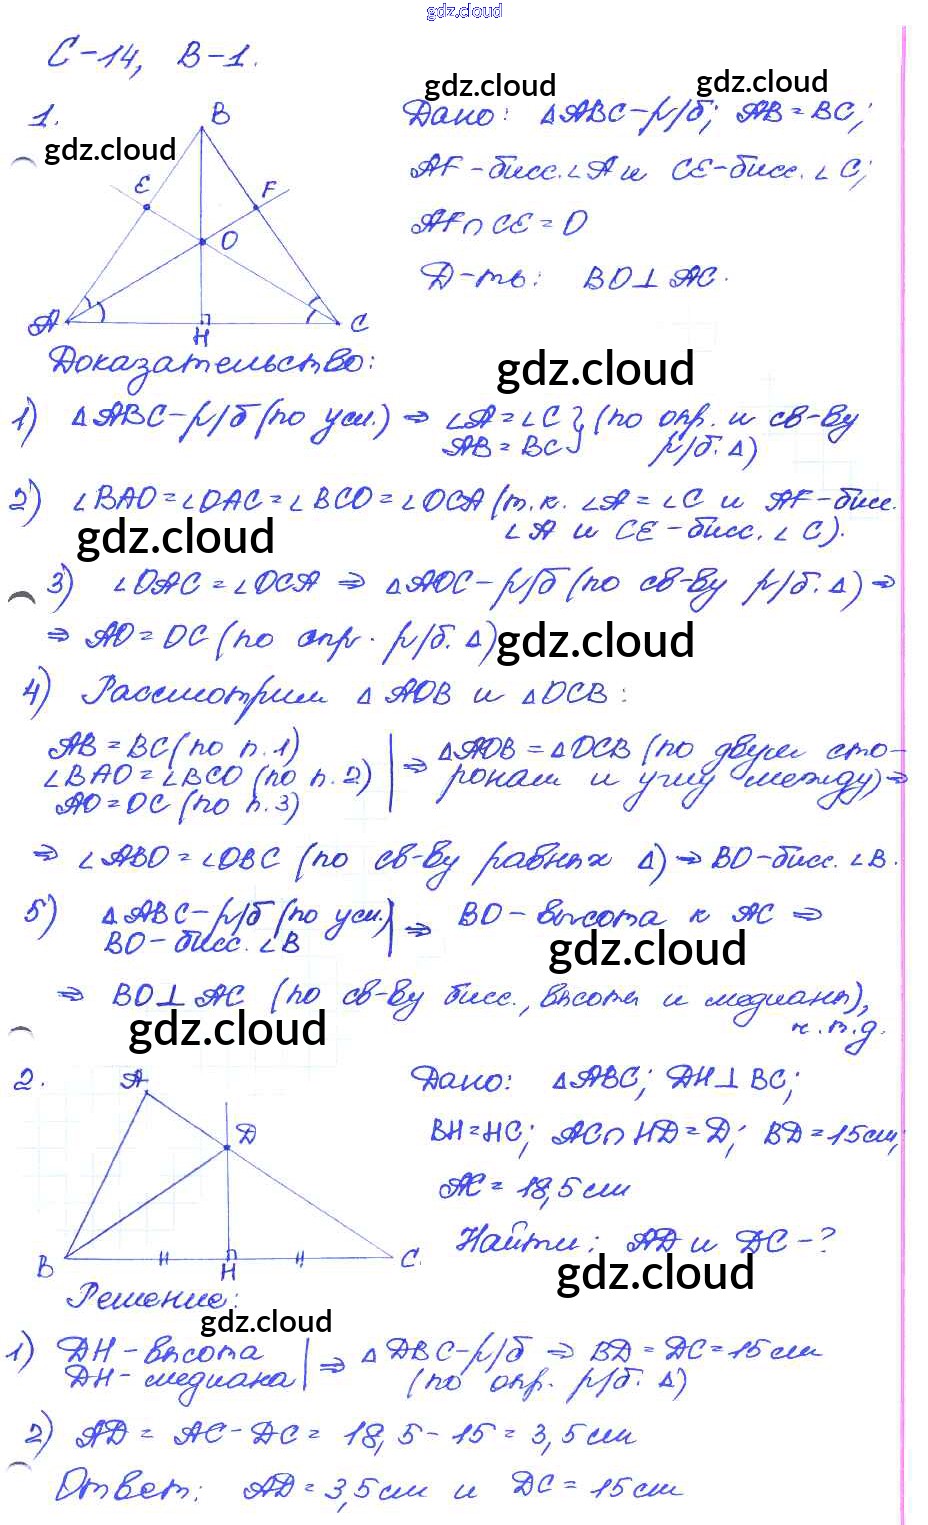 gdz.cloud
С-14, В-1.
gdz.cloud
gdz.cloud
1.
gdz.cloud
B
E
F
O
A
H
C
Дано: △ABC-р/б; AB=BC;
AF-бисс.∠A и CE-бисс.∠C;
AF∩CE=O
Д-ть: BO⊥AC.
Доказательство:
gdz.cloud
1) △ABC-р/б (по усл.) ⇒ ∠A=∠C } (по опр. и св-ву
AB=BC р/б. △)
2) ∠BAO=∠OAC=∠BCO=∠OCA (т.к. ∠A=∠C и AF-бисс.
∠A и CE-бисс. ∠C).
gdz.cloud
3) ∠OAC=∠OCA ⇒ △AOC-р/б (по св-ву р/б. △) ⇒
⇒ AO=OC (по опр. р/б. △)
gdz.cloud
4) Рассмотрим △AOB и △OCB:
AB=BC (по п.1)
∠BAO=∠BCO (по п.2)
AO=OC (по п.3)
⇒ △AOB=△OCB (по двум сто-
ронам и углу между) ⇒
⇒ ∠ABO=∠OBC (по св-ву равных △) ⇒ BO-бисс. ∠B.
5) △ABC-р/б (по усл.)
BO-бисс. ∠B
⇒ BO-высота к AC ⇒
gdz.cloud
⇒ BO⊥AC (по св-ву бисс., высоты и медианы),
ч.т.д.
gdz.cloud
2.
A
D
B
H
C
Дано: △ABC; DH⊥BC;
BH=HC; AC∩HD=D; BD=15см;
AC=18,5см
Найти: AD и DC-?
gdz.cloud
Решение:
gdz.cloud
1) DH-высота
DH-медиана
⇒ △DBC-р/б ⇒ BD=DC=15см
(по опр. р/б. △)
2) AD=AC-DC=18,5-15=3,5см
Ответ: AD=3,5см и DC=15см